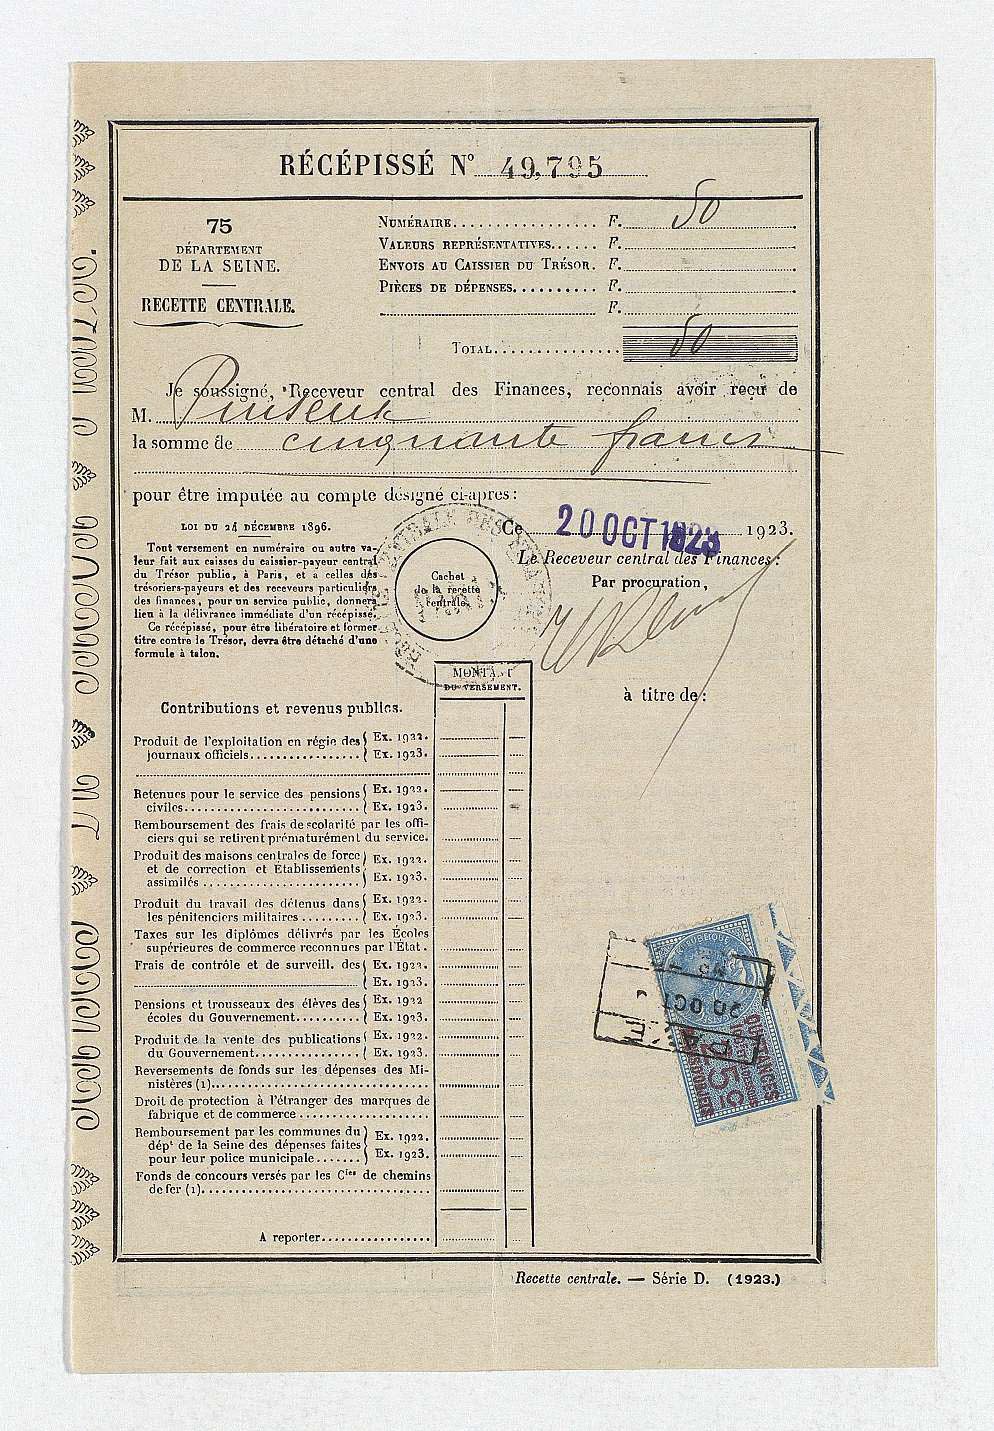 RÉCÉPISSÉ N° 49,795
75
DÉPARTEMENT
DE LA SEINE.
RECETTE CENTRALE.
NUMÉRAIRE................. F. 50
VALEURS REPRÉSENTATIVES...... F.
ENVOIS AU CAISSIER DU TRÉSOR. F.
PIÈCES DE DÉPENSES.......... F.
F.
TOTAL............... 50
Je soussigné, Receveur central des Finances, reconnais avoir reçu de
M.
la somme de cinquante francs
pour être imputée au compte désigné ci-après:
LOI DU 24 DÉCEMBRE 1896.
Tout versement en numéraire ou autre va-
leur fait aux caisses du caissier-payeur central
du Trésor public, à Paris, et à celles des
trésoriers-payeurs et des receveurs particuliers
des finances, pour un service public, donnera
lieu à la délivrance immédiate d'un récépissé.
Ce récépissé, pour être libératoire et former
titre contre le Trésor, devra être détaché d'une
formule à talon.
Cachet
de la recette
centrale.
Ce 20 OCT 1923 1923.
Le Receveur central des Finances:
Par procuration,
à titre de:
MONTANT
DU VERSEMENT.
Contributions et revenus publics.
Produit de l'exploitation en régie des { Ex. 1922.
journaux officiels................ { Ex. 1923.
Retenues pour le service des pensions { Ex. 1922.
civiles.......................... { Ex. 1923.
Remboursement des frais de scolarité par les offi-
ciers qui se retirent prématurément du service.
Produit des maisons centrales de force } Ex. 1922.
et de correction et Établissements
assimilés ....................... } Ex. 1923.
Produit du travail des détenus dans { Ex. 1922.
les pénitenciers militaires ......... { Ex. 1923.
Taxes sur les diplômes délivrés par les Écoles
supérieures de commerce reconnues par l'État.
Frais de contrôle et de surveill. des { Ex. 1922.
{ Ex. 1923.
Pensions et trousseaux des élèves des { Ex. 1922
écoles du Gouvernement.......... { Ex. 1923.
Produit de la vente des publications { Ex. 1922.
du Gouvernement................ { Ex. 1923.
Reversements de fonds sur les dépenses des Mi-
nistères (1)..................................
Droit de protection à l'étranger des marques de
fabrique et de commerce ....................
Remboursement par les communes du } Ex. 1922.
dépt de la Seine des dépenses faites
pour leur police municipale....... } Ex. 1923.
Fonds de concours versés par les Cies de chemins
de fer (1)....................................
A reporter.................
RÉPUBLIQUE
20 OCT
QUITTANCES
25c
Recette centrale. — Série D. (1923.)